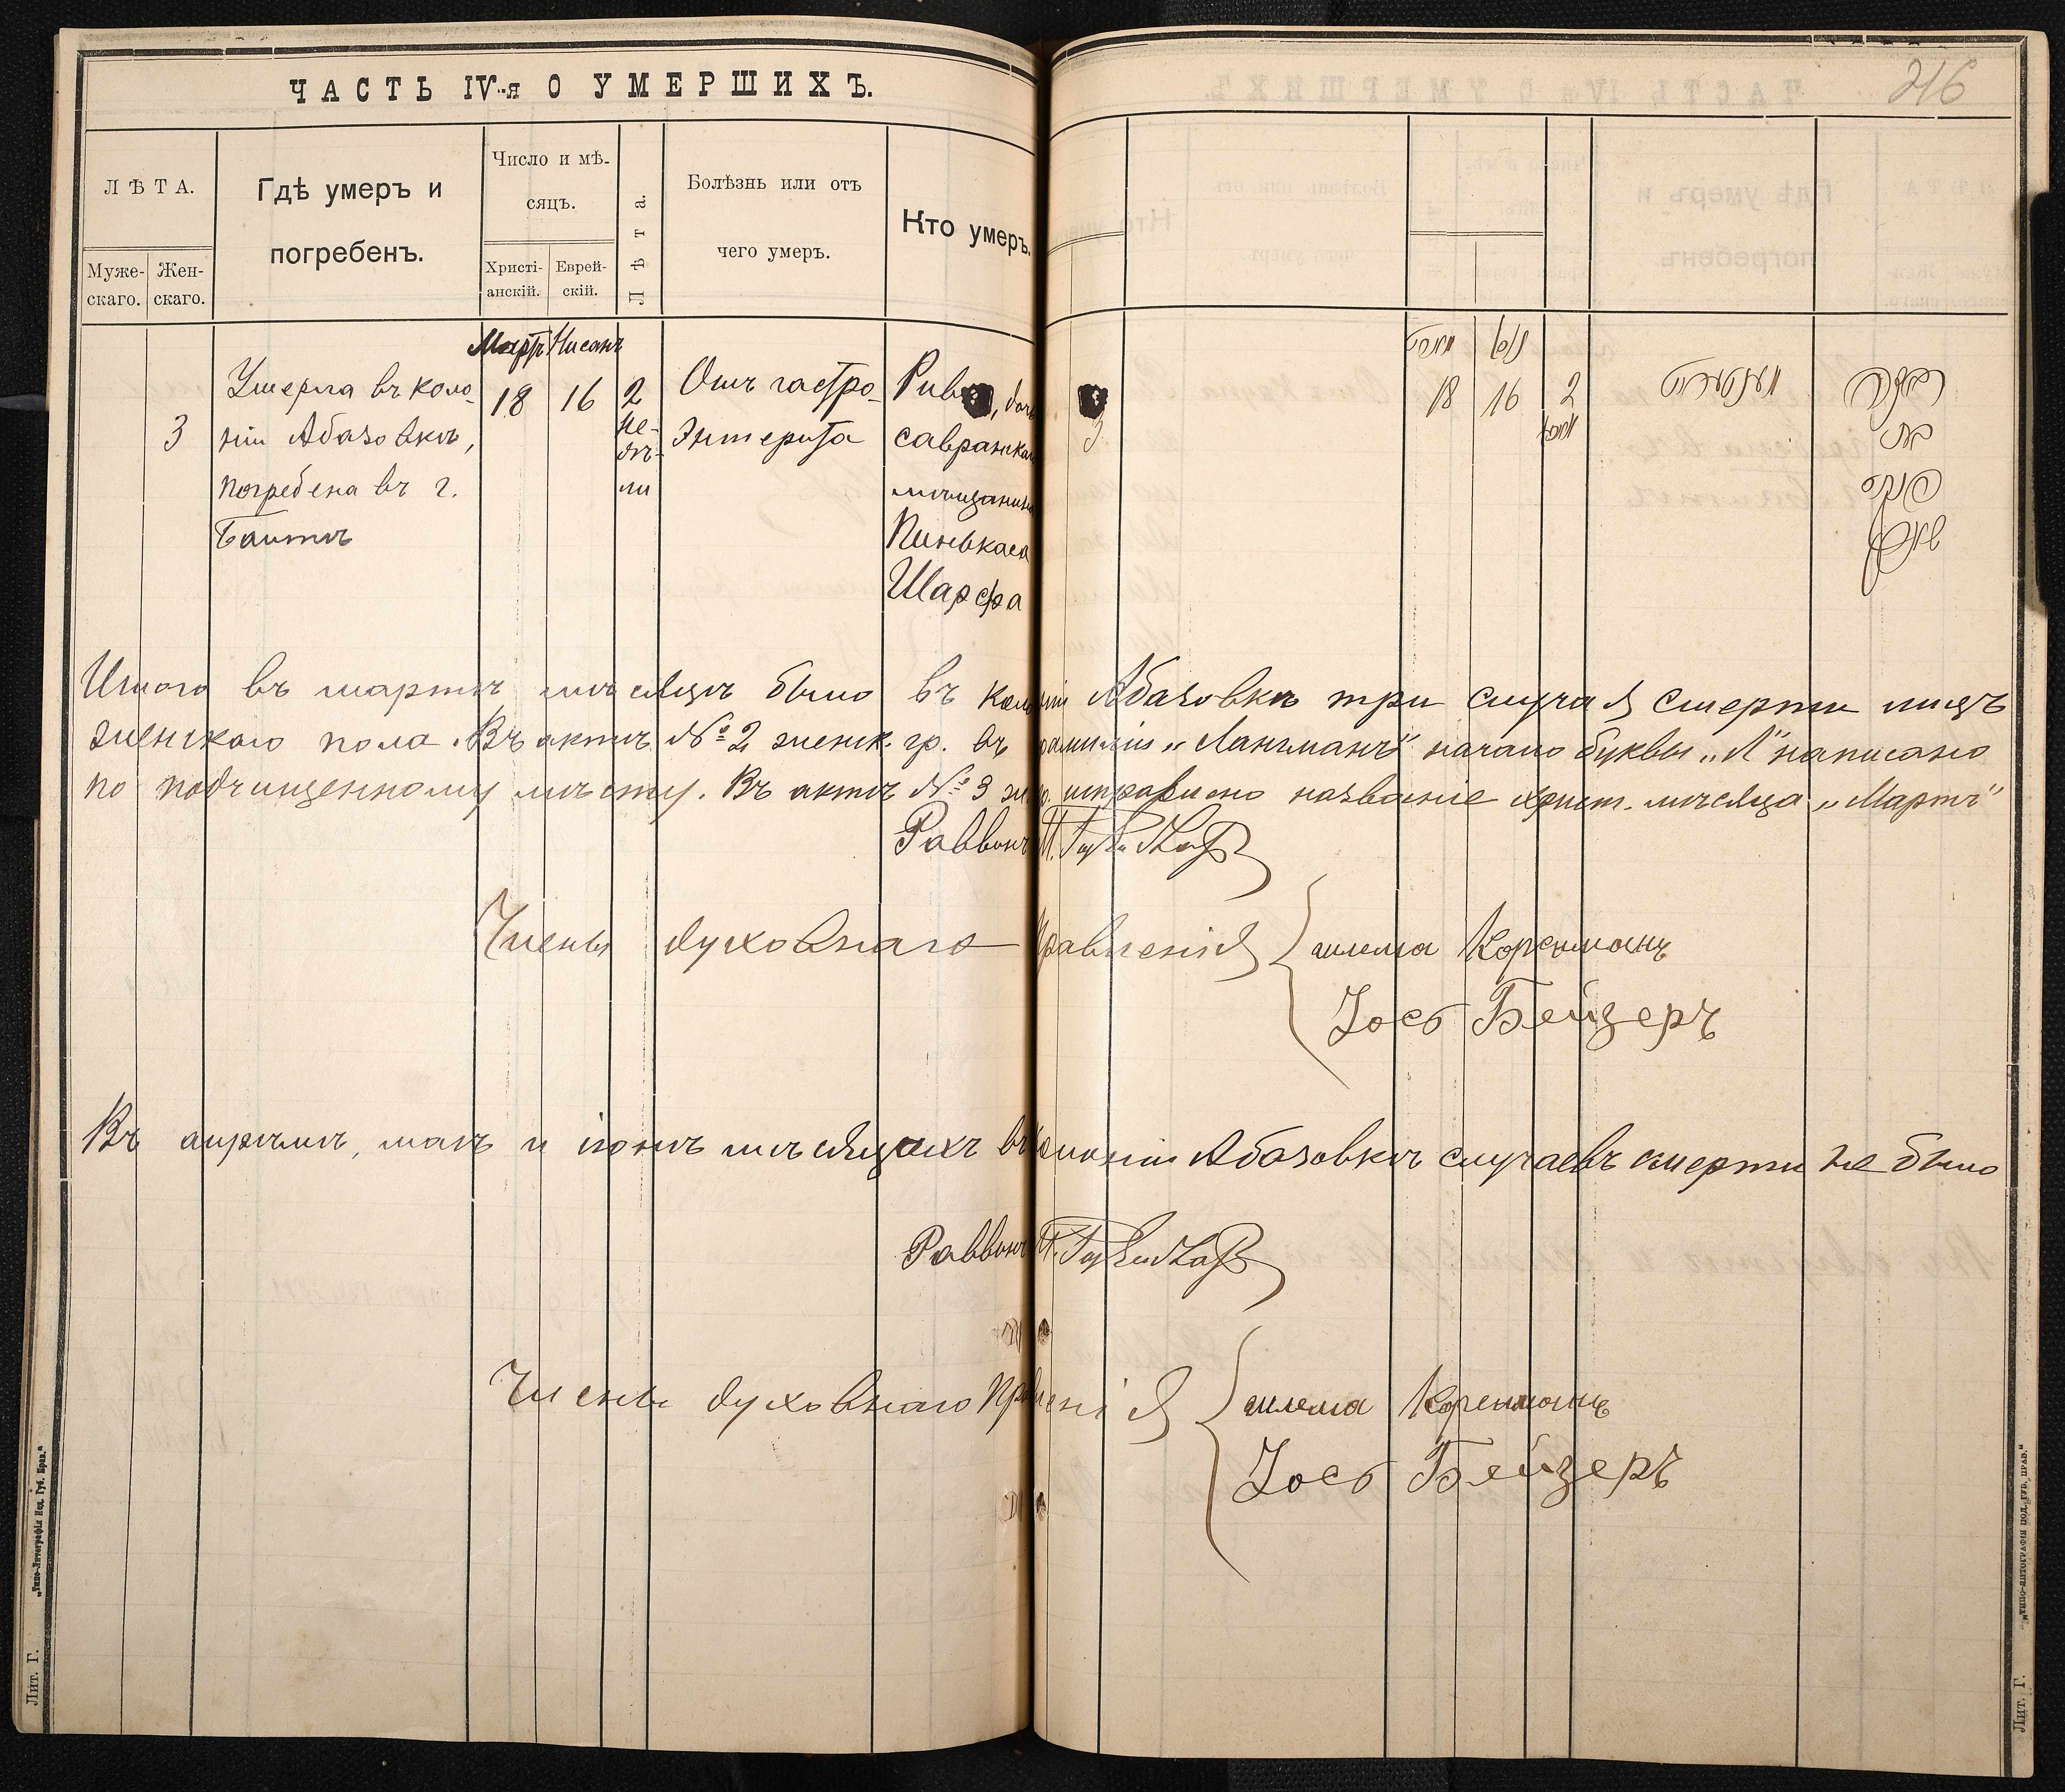 ЧАСТЬ IV-я О УМЕРШИХЪ.
216
ЛѢТА.
Муже-
скаго.
Жен-
скаго.
Гдѣ умеръ и
погребенъ.
Число и мѣ-
сяцъ.
Христі-
анскій.
Еврей-
скій.
Лѣта.
Болѣзнь или отъ
чего умеръ.
Кто умеръ.
Мартъ Нисанъ
3
Умерла въ коло-
ніи Абазовкѣ,
погребена въ г.
Балтѣ
18
16
2
не-
дѣ-
ли
Отъ гастро-
энтерита
дочь
савранскаго
мѣщанина
Пинькаса
Шарфа
ניסן
18
16
2
3
Итого въ мартѣ мѣсяцѣ было въ колоніи Абазовкѣ три случая смерти лицъ
женскаго пола. Въ актѣ № 2 женск. гр. въ фамиліи „Лангманъ" начало буквы „Л" написано
по подчищенному мѣсту. Въ актѣ № 3 исправлено названіе христ. мѣсяца „Мартъ"
Раввинъ
Члены духовнаго Правленія
шлема Коренманъ
Іось Бейзеръ
Въ апрѣлѣ, маѣ и іюнѣ мѣсяцахъ въ колоніи Абазовкѣ случаевъ смерти не было
Раввинъ
Члены духовнаго Правленія
шлема Коренманъ
Іось Бейзеръ
Лит. Г.
„Типо-Литографія Под. Губ. Прав."
Лит. Г.
„Типо-литографія под. губ. прав."